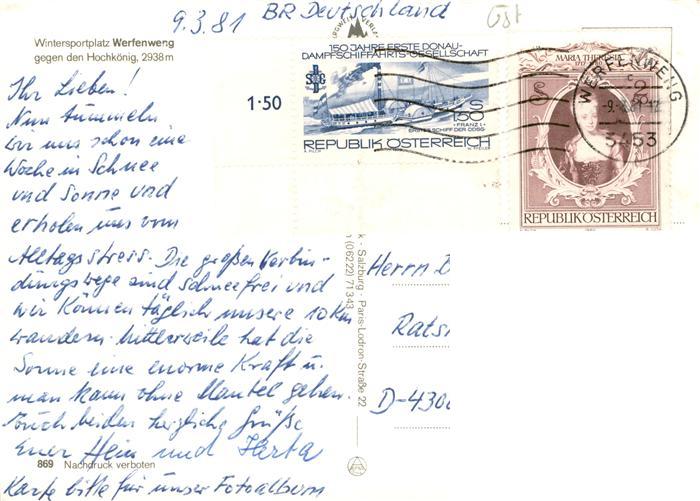 9.3.81 BR Deutschland
Gst
Wintersportplatz Werfenweng
gegen den Hochkönig, 2938 m
Ihr Lieben!
Nun tummeln
wir uns schon eine
Woche in Schnee
und Sonne und
erholen uns vom
Alltagsstress. Die großen Verbin-
dungswege sind schneefrei und
wir können täglich unsere 10 km
wandern. Mittlerweile hat die
Sonne eine enorme Kraft u.
man kann ohne Mantel gehen.
Euch beiden herzliche Grüße
Euer Hein und Herta
869 Nachdruck verboten
Karte bitte für unser Fotoalbum
1·50
150 JAHRE ERSTE DONAU-
DAMPFSCHIFFAHRTS-GESELLSCHAFT
S
1.50
FRANZ I.
ERSTES SCHIFF DER DDSG
REPUBLIK ÖSTERREICH
MARIA THERESIA
S 2
REPUBLIK ÖSTERREICH
WERFENWENG
3453
k · Salzburg · Paris-Lodron-Straße 22
(06222) 71343
Herrn D
Ratsi
D-430